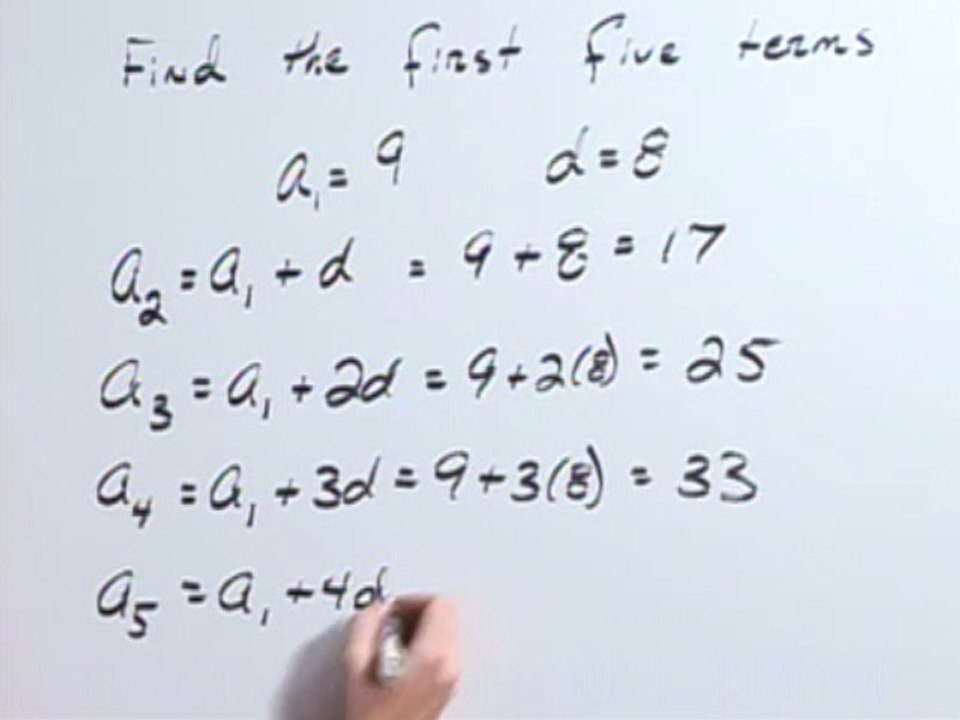 Find the first five terms
a₁ = 9 d = 8
a₂ = a₁ + d = 9 + 8 = 17
a₃ = a₁ + 2d = 9 + 2(8) = 25
a₄ = a₁ + 3d = 9 + 3(8) = 33
a₅ = a₁ + 4d